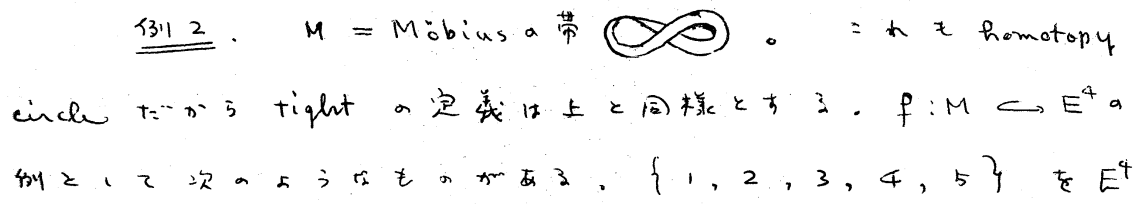 例 2. M = Möbius の 帯 。 これも homotopy
circle だから tight の定義は上と同様とする。 f : M ↪ E⁴ の
例として次のようなものがある。 { 1, 2, 3, 4, 5 } を E⁴